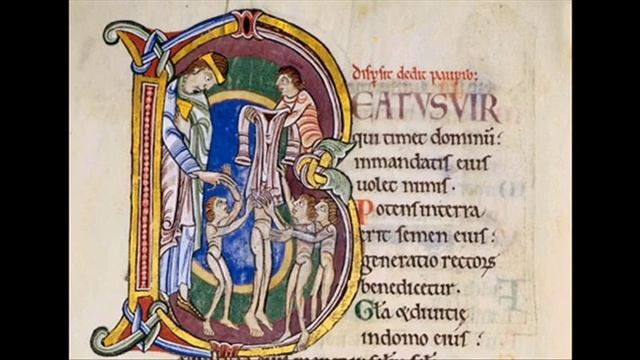 dispsit dedit paupib:
BEATVS VIR
qui timet dominū:
inmandatis eius
uolet nimis.
Potens interra
erit semen eius:
generatio rectorꝝ
benedicetur.
Gła &diuitię
indomo eius: